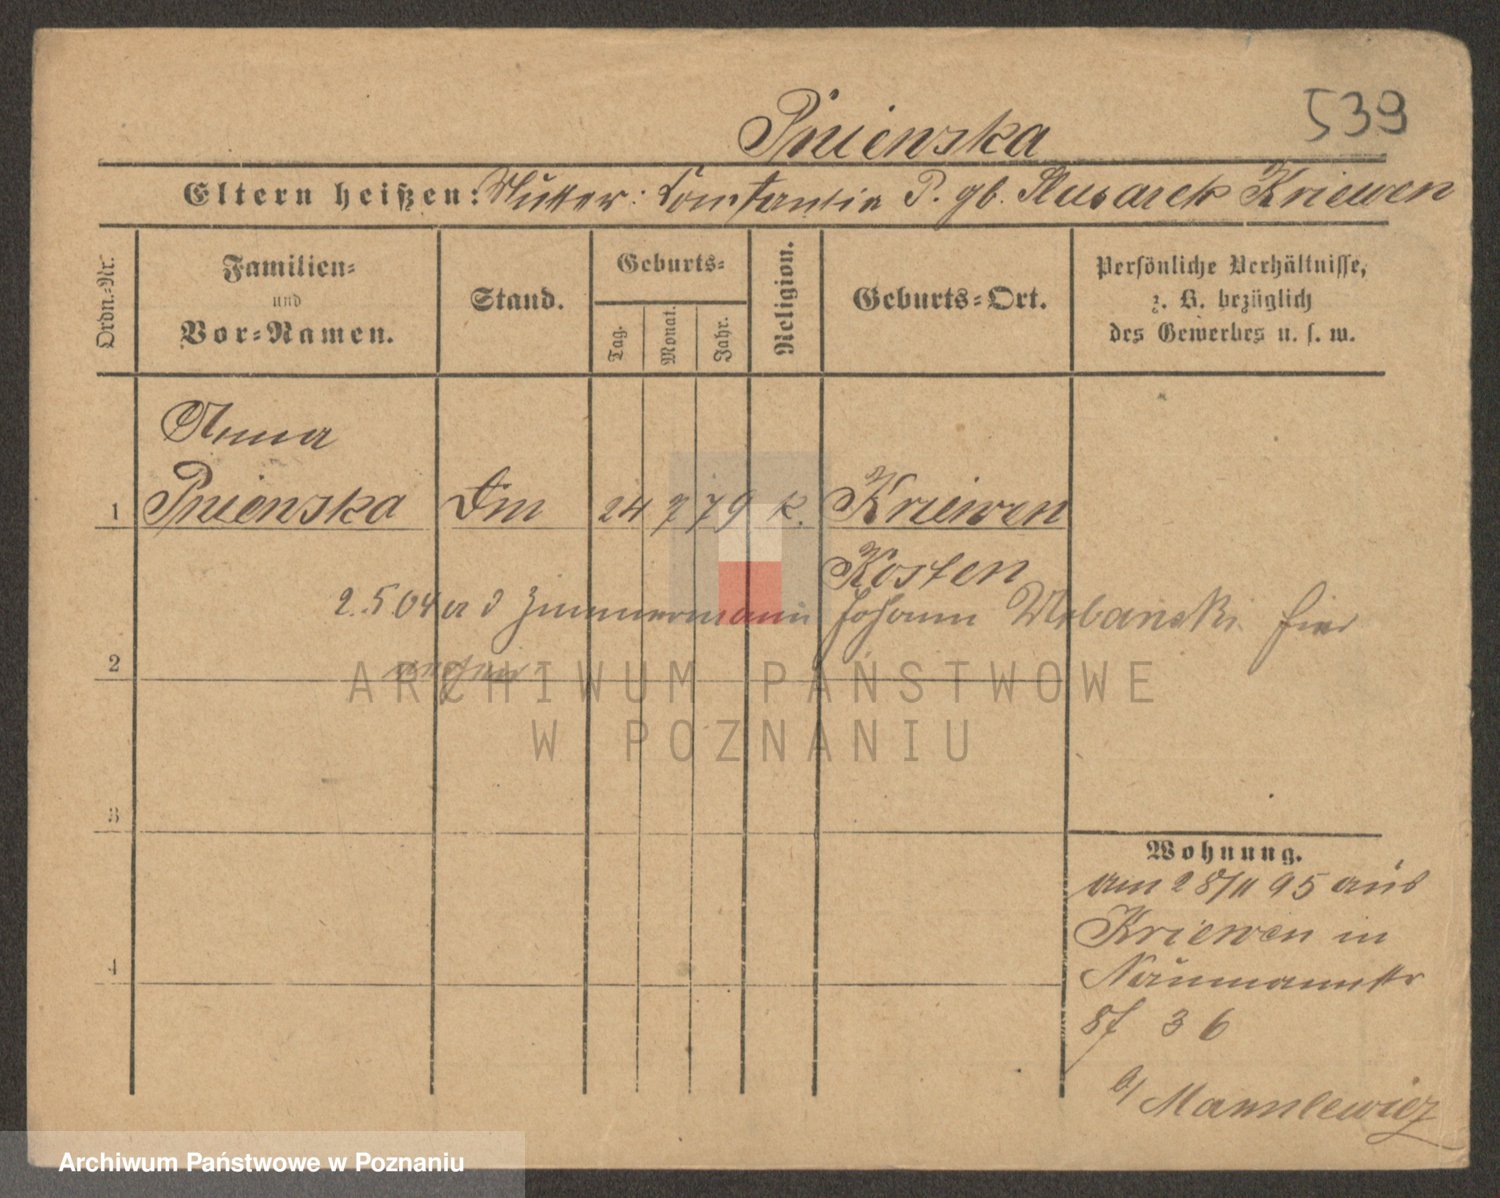 Pnienska
539
Eltern heißen: Mutter: Constantia P. gb. Slusarek Kriewen
Ordn.-Nr.
Familien-
und
Vor-Namen.
Stand.
Geburts-
Tag.
Monat.
Jahr.
Religion.
Geburts-Ort.
Persönliche Verhältnisse,
z. B. bezüglich
des Gewerbes u. s. w.
Anna
1 Pnienska Dm 24 7 79 k. Kriewen
Kosten
2.5 04 a d Zimmermann Johann Urbanski hier
2
3
4
Wohnung.
am 28/11 95 aus
Kriewen in
Naumannstr
8f 36
b/ Mannlewicz
ARCHIWUM PAŃSTWOWE
W POZNANIU
Archiwum Państwowe w Poznaniu